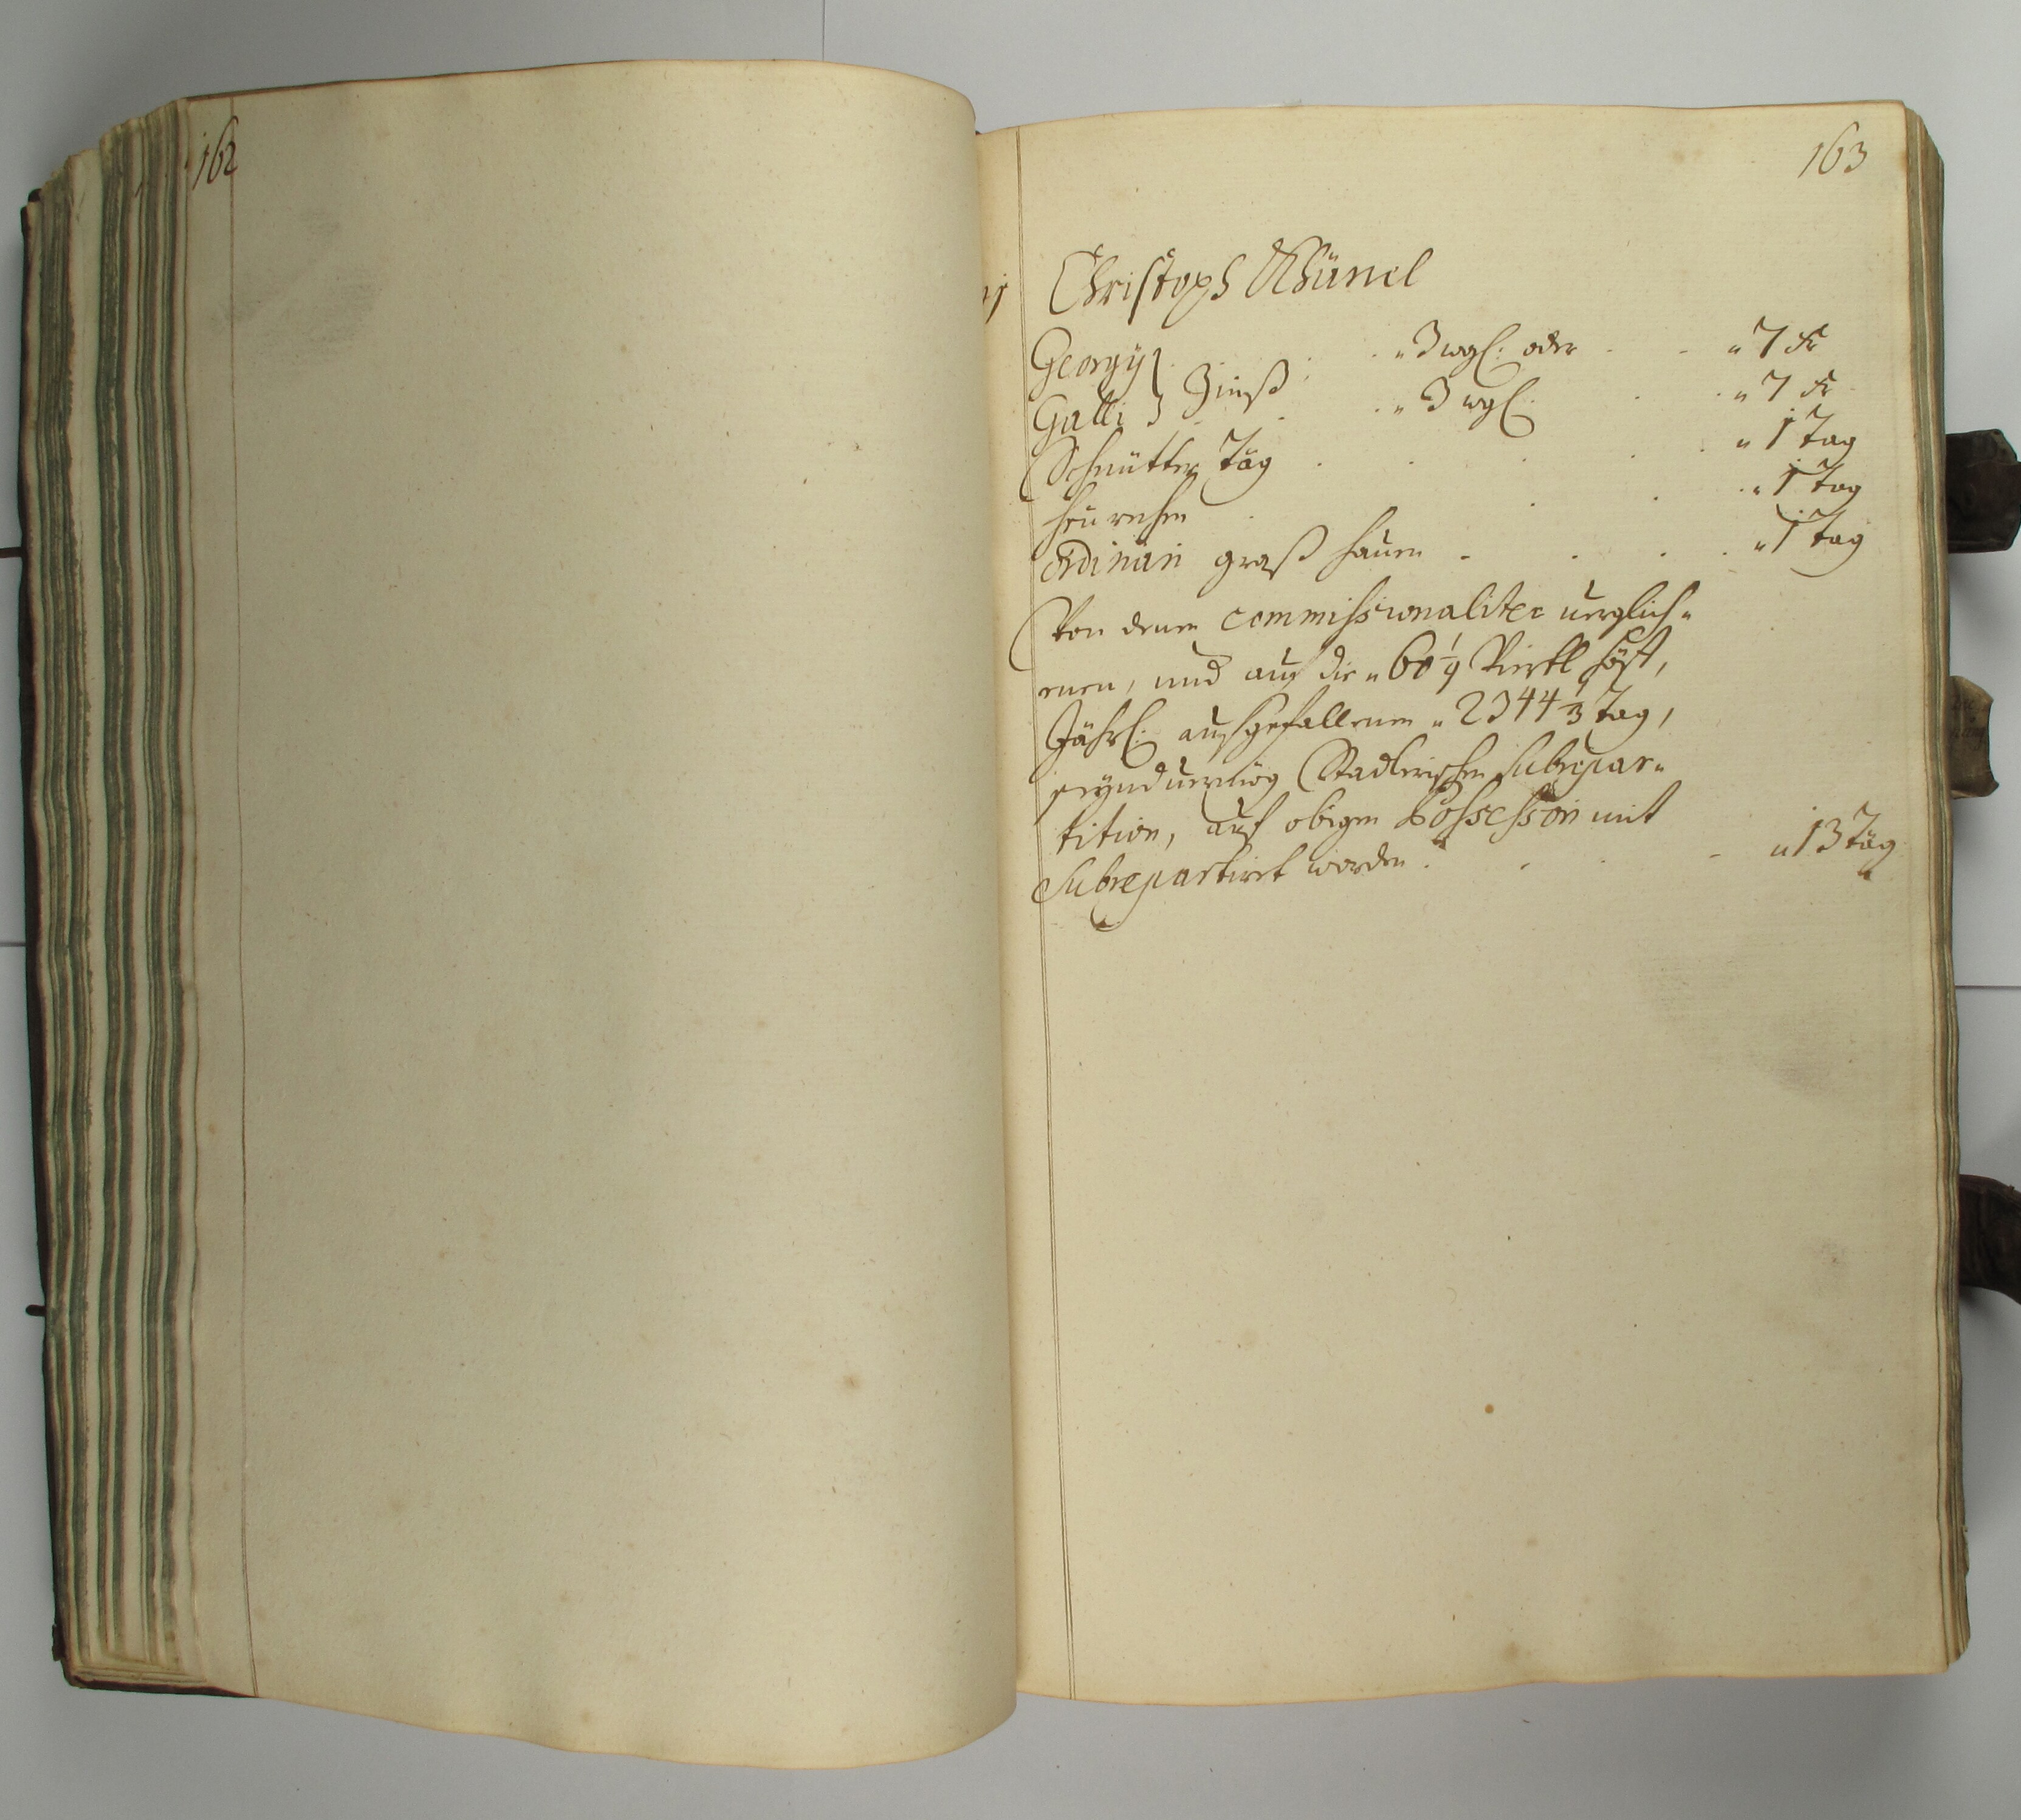 162
163
Christoph Khünel
Georgÿ } . . „ 3 wgl: oder . . „ 7 Kr
Galli } Zinß . . „ 3 wgl: . . „ 7 Kr
Schnütter Täg . . . . . „ 1 Tag
heu rehen . . . „ 1 Tag
ordinari graß hauen . . . . „ 1 Tag
Von denen commissionaliter verglich„
enen, und auf die „ 60 1/4 Viertl höff,
Jährl: außgefallenen „ 2344 1/3 Tag,
Stadlerischen Subrepar„
tition, auf obigen Possessori mit
Subrepartiret worden . . . „ 13 Täg